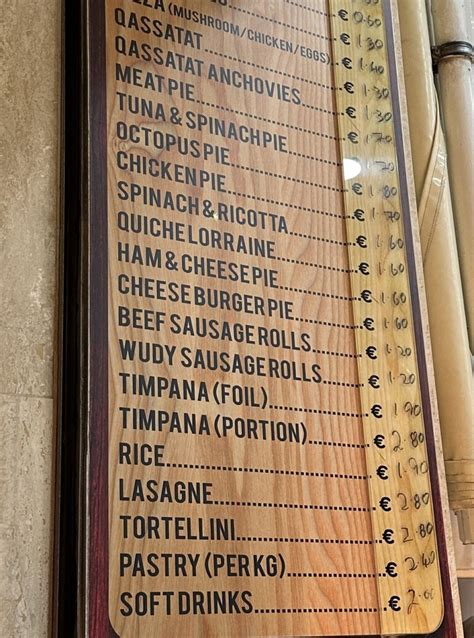 (MUSHROOM/CHICKEN/EGGS) € 1.30
QASSATAT € 1.40
QASSATAT ANCHOVIES € 1.30
MEAT PIE € 1.30
TUNA & SPINACH PIE € 1.70
OCTOPUS PIE
CHICKEN PIE € 1.80
SPINACH & RICOTTA € 1.70
QUICHE LORRAINE € 1.60
HAM & CHEESE PIE € 1.60
CHEESE BURGER PIE € 1.60
BEEF SAUSAGE ROLLS € 1.20
WUDY SAUSAGE ROLLS € 1.20
TIMPANA (FOIL) € 1.90
TIMPANA (PORTION) € 2.80
RICE € 1.90
LASAGNE € 2.80
TORTELLINI € 2.80
PASTRY (PER KG) € 2.40
SOFT DRINKS € 2.00